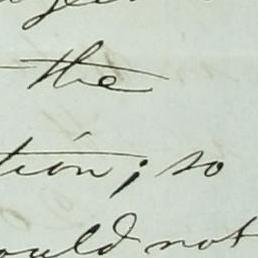 the
tion; so
ould not